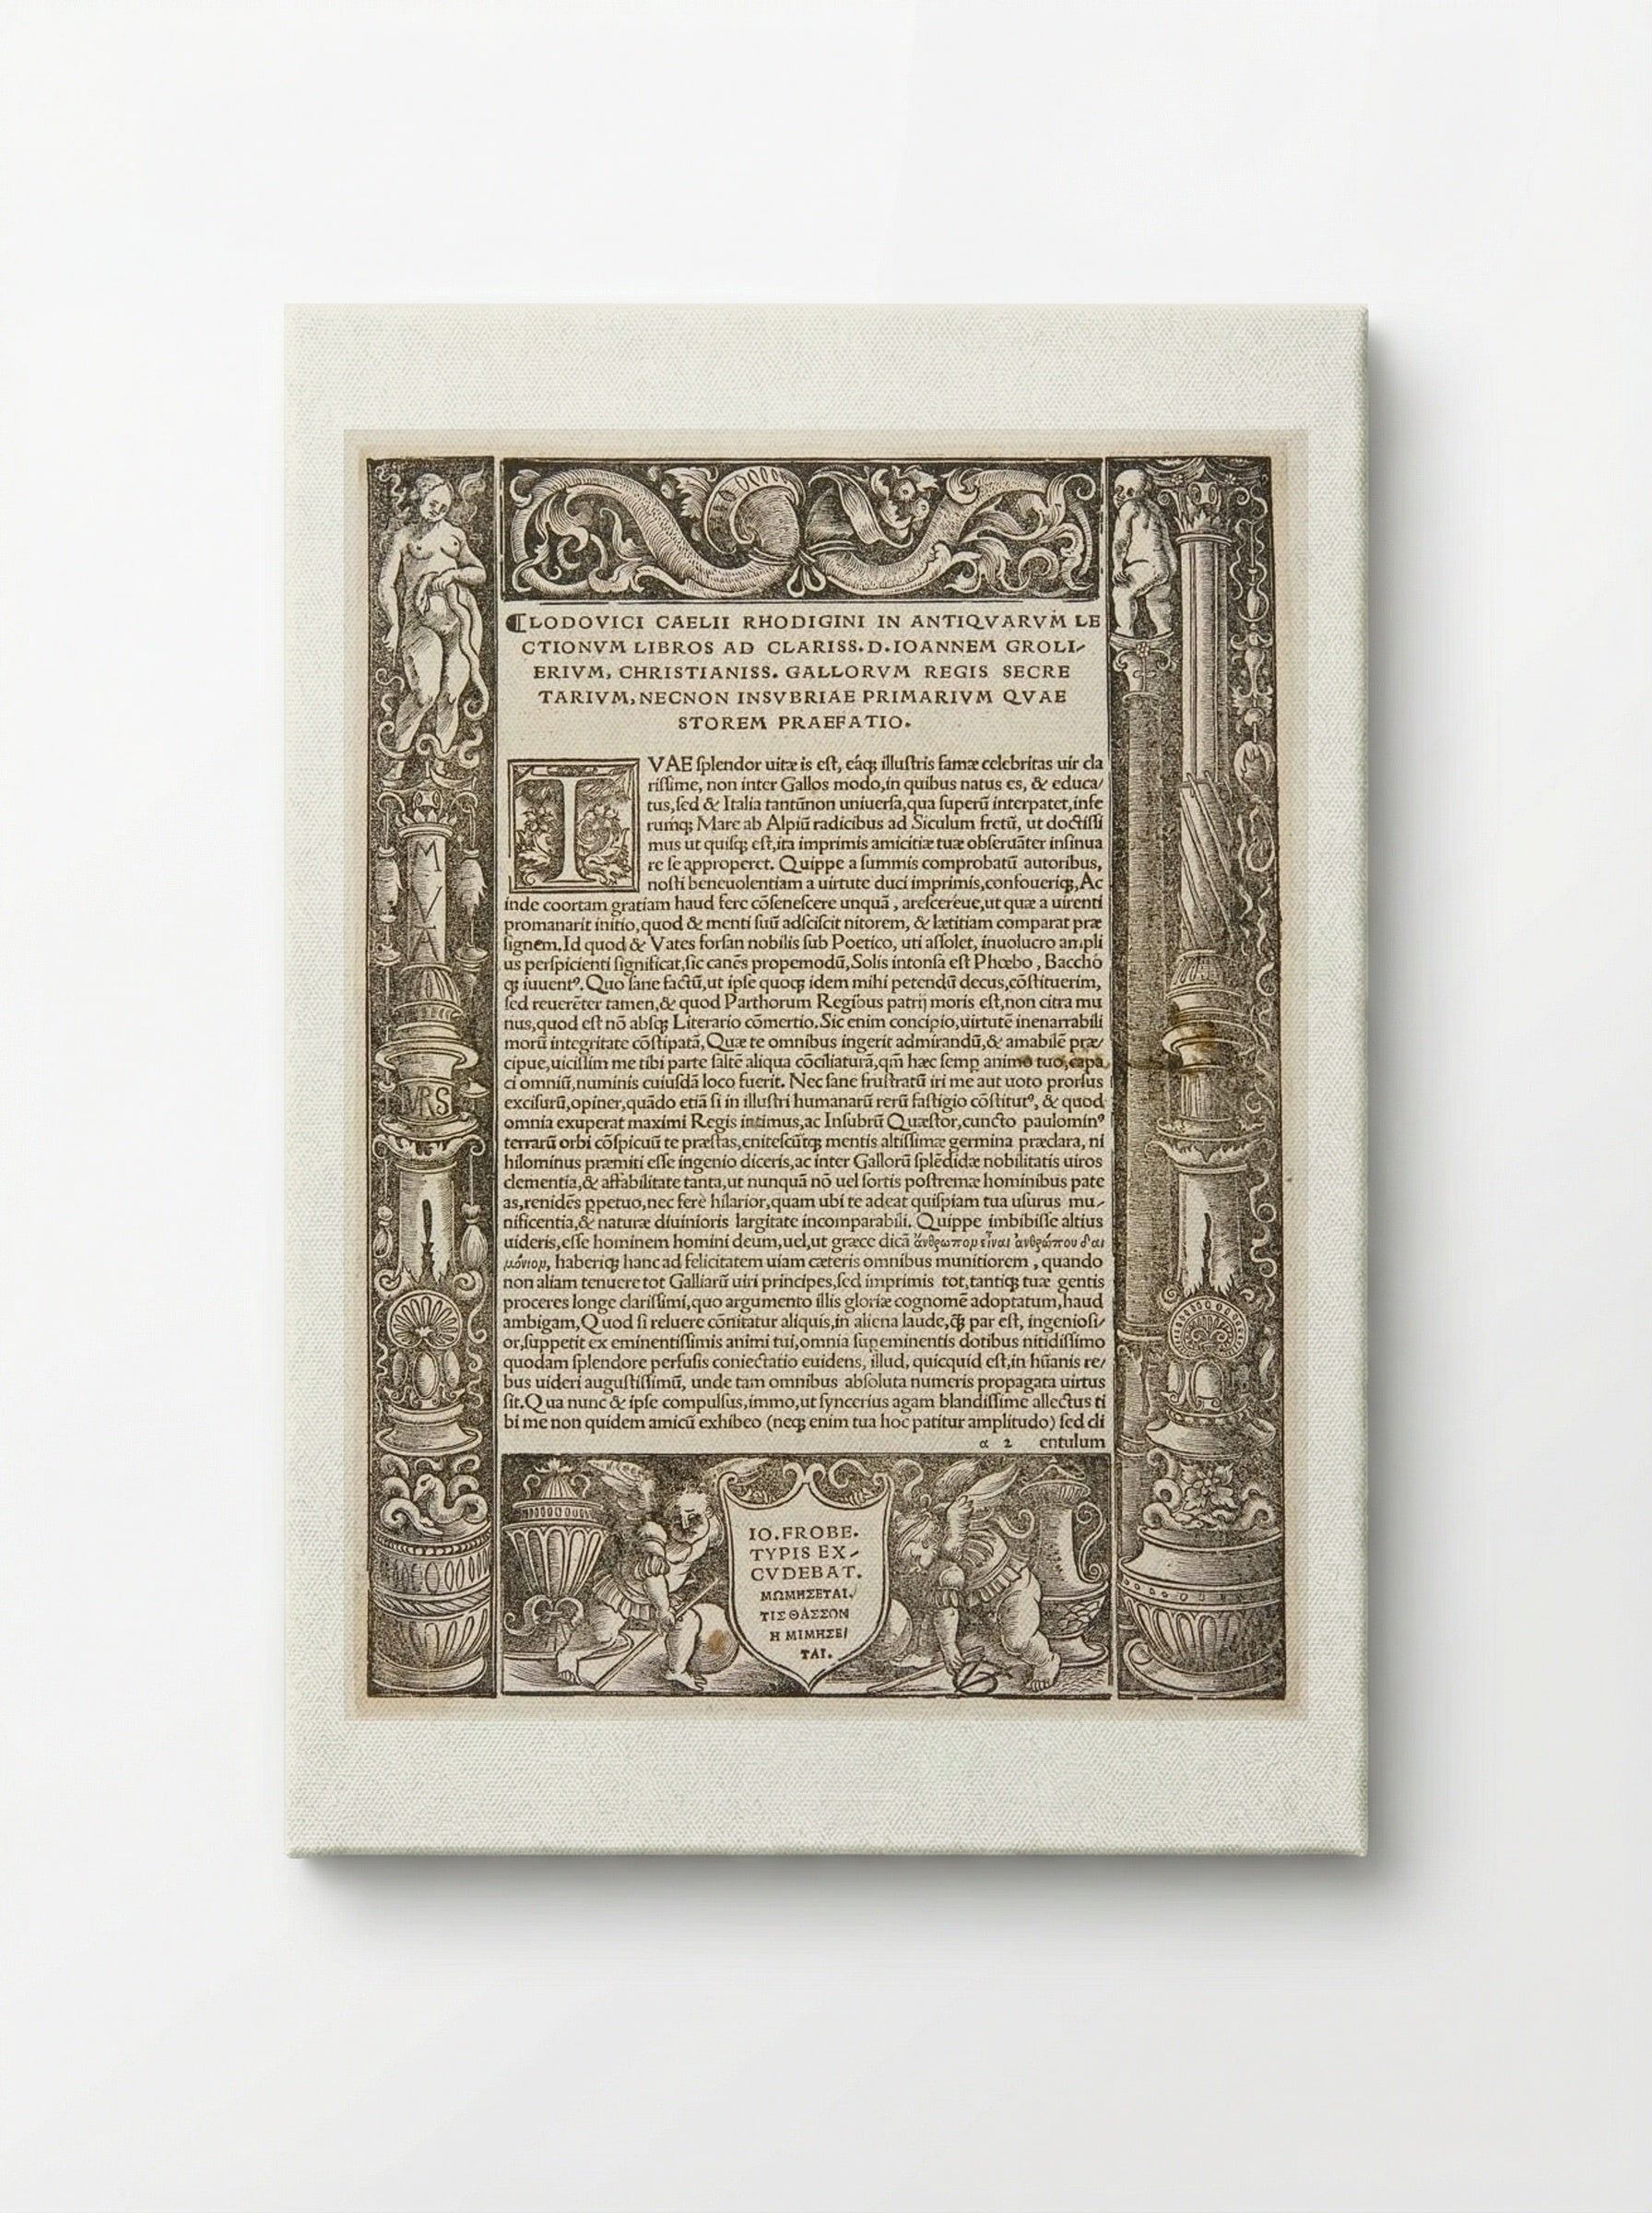 ⸿LODOVICI CAELII RHODIGINI IN ANTIQVARVM LE
CTIONVM LIBROS AD CLARISS.D.IOANNEM GROLI⸗
ERIVM, CHRISTIANISS. GALLORVM REGIS SECRE
TARIVM,NECNON INSVBRIAE PRIMARIVM QVAE
STOREM PRAEFATIO.
IVAE ſplendor uitæ is eſt, eáq; illuſtris famæ celebritas uir cla
riſſime, non inter Gallos modo,in quibus natus es, & educa/
tus,ſed & Italia tantūnon uniuerſa,qua ſuperū interpatet,infe
rumq; Mare ab Alpiū radicibus ad Siculum fretū, ut doctiſſi
mus ut quiſq; eſt,ita imprimis amicitiæ tuæ obſeruāter inſinua
re ſe approperet. Quippe a ſummis comprobatū autoribus,
noſti beneuolentiam a uirtute duci imprimis,confoueriq;,Ac
inde coortam gratiam haud fere cōſeneſcere unquā, areſcereue,ut quæ a uirenti
promanarit initio,quod & menti ſuū adſciſcit nitorem, & lætitiam comparat præ
ſignem.Id quod & Vates forſan nobilis ſub Poetico, uti aſſolet, inuolucro ampli
us perſpicienti ſignificat,ſic canēs propemodū,Solis intonſa eſt Phœbo, Bacchó
q; iuuentꝰ. Quo ſane factū,ut ipſe quoq; idem mihi petendū decus,cōſtituerim,
ſed reuerēter tamen,& quod Parthorum Regibus patrij moris eſt,non citra mu
nus,quod eſt nō abſq; Literario cōmertio.Sic enim concipio,uirtutē inenarrabili
morū integritate cōſtipatā, Quæ te omnibus ingerit admirandū,& amabilē præ/
cipue,uiciſſim me tibi parte ſaltē aliqua cōciliaturā,qm̄ hæc ſemp animo tuo,capa
ci omniū,numinis cuiuſdā loco fuerit. Nec ſane fruſtratū iri me aut uoto prorſus
exciſurū,opiner,quādo etiā ſi in illuſtri humanarū rerū faſtigio cōſtitutꝰ, & quod
omnia exuperat maximi Regis intimus,ac Inſubrū Quæſtor,cuncto paulominꝰ
terrarū orbi cōſpicuū te præſtas,eniteſcūtq; mentis altiſſimæ germina præclara, ni
hilominus præmiti eſſe ingenio diceris,ac inter Gallorū ſplēdidæ nobilitatis uiros
clementia,& affabilitate tanta,ut nunquā nō uel ſortis poſtremæ hominibus pate
as,renidēs ꝑpetuo,nec ferè hilarior,quam ubi te adeat quiſpiam tua uſurus mu⸗
nificentia,& naturæ diuinioris largitate incomparabili. Quippe imbibiſſe altius
uideris,eſſe hominem homini deum,uel,ut græce dicā ἄνθρωπον εἶναι ἀνθρώπου δαι
μόνιον, haberiq; hanc ad felicitatem uiam cæteris omnibus munitiorem, quando
non aliam tenuere tot Galliarū uiri principes,ſed imprimis tot,tantiq; tuæ gentis
proceres longe clariſſimi,quo argumento illis gloriæ cognomē adoptatum,haud
ambigam,Quod ſi reluere cōnitatur aliquis,in aliena laude,q̄ꝫ par eſt, ingenioſi/
or,ſuppetit ex eminentiſſimis animi tui,omnia ſuꝑeminentis dotibus nitidiſſimo
quodam ſplendore perfuſis coniectatio euidens, illud, quicquid eſt,in hūanis re/
bus uideri auguſtiſſimū, unde tam omnibus abſoluta numeris propagata uirtus
ſit.Qua nunc & ipſe compulſus,immo,ut ſyncerius agam blandiſſime allectus ti
bi me non quidem amicū exhibeo (neq; enim tua hoc patitur amplitudo) ſed di
α 2 entulum
M
V
A
VRS
IO.FROBE.
TYPIS EX⸗
CVDEBAT.
ΜΩΜΗΣΕΤΑΙ/
ΤΙΣ ΘΑΣΣΟΝ
Η ΜΙΜΗΣΕ/
ΤΑΙ.